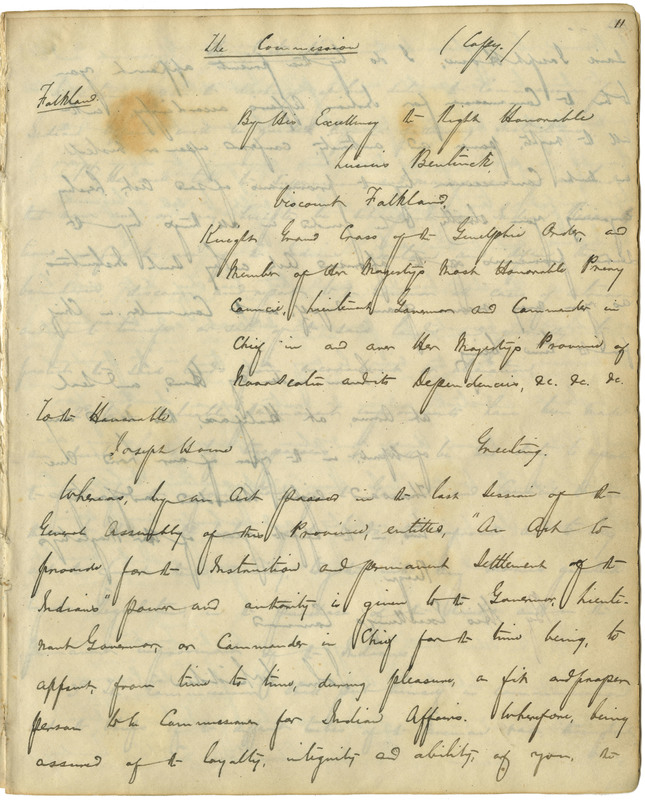 11
The Commission (Copy.)
Falkland
By His Excellency the Right Honorable
Lucius Bentinck,
Viscount Falkland,
Knight Grand Cross of the Guelphic Order, and
Member of Her Majesty's Most Honorable Privy
Council, Lieutenant Governor and Commander in
Chief in and over Her Majesty's Province of
Nova Scotia and its Dependencies, &c. &c. &c.
To the Honorable
Joseph Howe Greeting.
Whereas, by an Act passed in the last Session of the
General Assembly of this Province, entitled, "An Act to
provide for the Instruction and permanent Settlement of the
Indians" power and authority is given to the Governor, Lieute-
nant Governor, or Commander in Chief for the time being, to
appoint, from time to time, during pleasure, a fit and proper
person to be Commissioner for Indian Affairs. Wherefore, being
assured of the loyalty, integrity and ability, of you, the